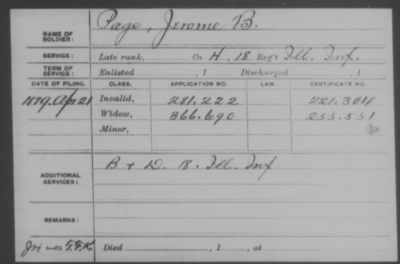 NAME OF SOLDIER: Page, Jerome B.
SERVICE: Late rank, Co. H, 18 Reg't Ill. Inf.
TERM OF SERVICE: Enlisted , 1 Discharged , 1
DATE OF FILING. CLASS. APPLICATION NO. LAW. CERTIFICATE NO.
1879, Apr 21 Invalid, 281.222 221.304
Widow, 366.690 255.551
Minor,
ADDITIONAL SERVICES: B + D. 8. Ill. Inf
REMARKS:
Died , 1 , at